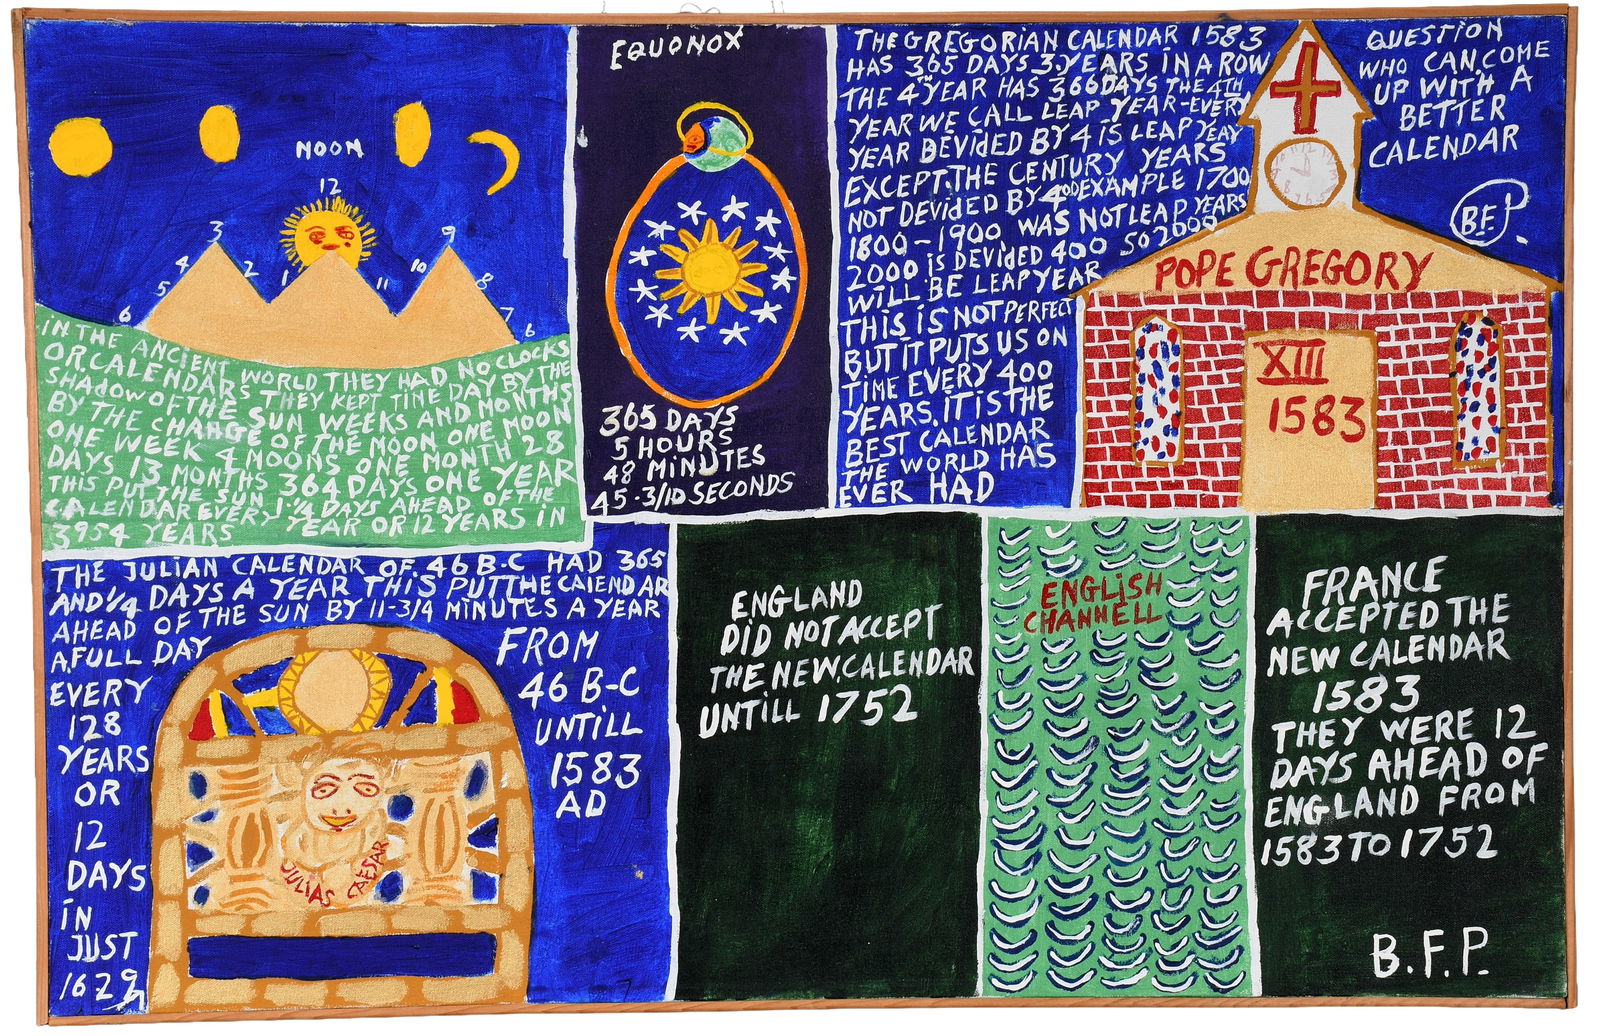 NOON
12
3
9
4
2
1
10
8
5
11
7
6
6
IN THE ANCIENT WORLD THEY HAD NO CLOCKS
OR CALENDARS THEY KEPT TIME DAY BY THE
SHADOW OF THE SUN WEEKS AND MONTHS
BY THE CHANGE OF THE MOON ONE MOON
ONE WEEK 4 MOONS ONE MONTH 28
DAYS 13 MONTHS 364 DAYS ONE YEAR
THIS PUT THE SUN 1-1/4 DAYS AHEAD OF THE
CALENDAR EVERY YEAR OR 12 YEARS IN
3954 YEARS
EQUONOX
365 DAYS
5 HOURS
48 MINUTES
45-3/10 SECONDS
THE GREGORIAN CALENDAR 1583
HAS 365 DAYS 3-YEARS IN A ROW
THE 4TH YEAR HAS 366 DAYS THE 4TH
YEAR WE CALL LEAP YEAR-EVERY
YEAR DEVIDED BY 4 IS LEAP YEAY
EXCEPT.THE CENTURY YEARS
NOT DEVIDED BY 400 EXAMPLE 1700
1800-1900 WAS NOT LEAP YEARS
2000 IS DEVIDED 400 SO 2000
WILL BE LEAP YEAR
THIS IS NOT PERFECT
BUT IT PUTS US ON
TIME EVERY 400
YEARS. IT IS THE
BEST CALENDAR
THE WORLD HAS
EVER HAD
QUESTION
WHO CAN COME
UP WITH A
BETTER
CALENDAR
B.F.P.
POPE GREGORY
XIII
1583
THE JULIAN CALENDAR OF 46 B-C HAD 365
AND 1/4 DAYS A YEAR THIS PUT THE CAIENDAR
AHEAD OF THE SUN BY 11-3/4 MINUTES A YEAR
A FULL DAY
EVERY
128
YEARS
OR
12
DAYS
IN
JUST
1629
FROM
46 B-C
UNTILL
1583
AD
JULIAS CAESAR
ENGLAND
DID NOT ACCEPT
THE NEW.CALENDAR
UNTILL 1752
ENGLISH
CHANNELL
FRANCE
ACCEPTED THE
NEW CALENDAR
1583
THEY WERE 12
DAYS AHEAD OF
ENGLAND FROM
1583 TO 1752
B.F.P.